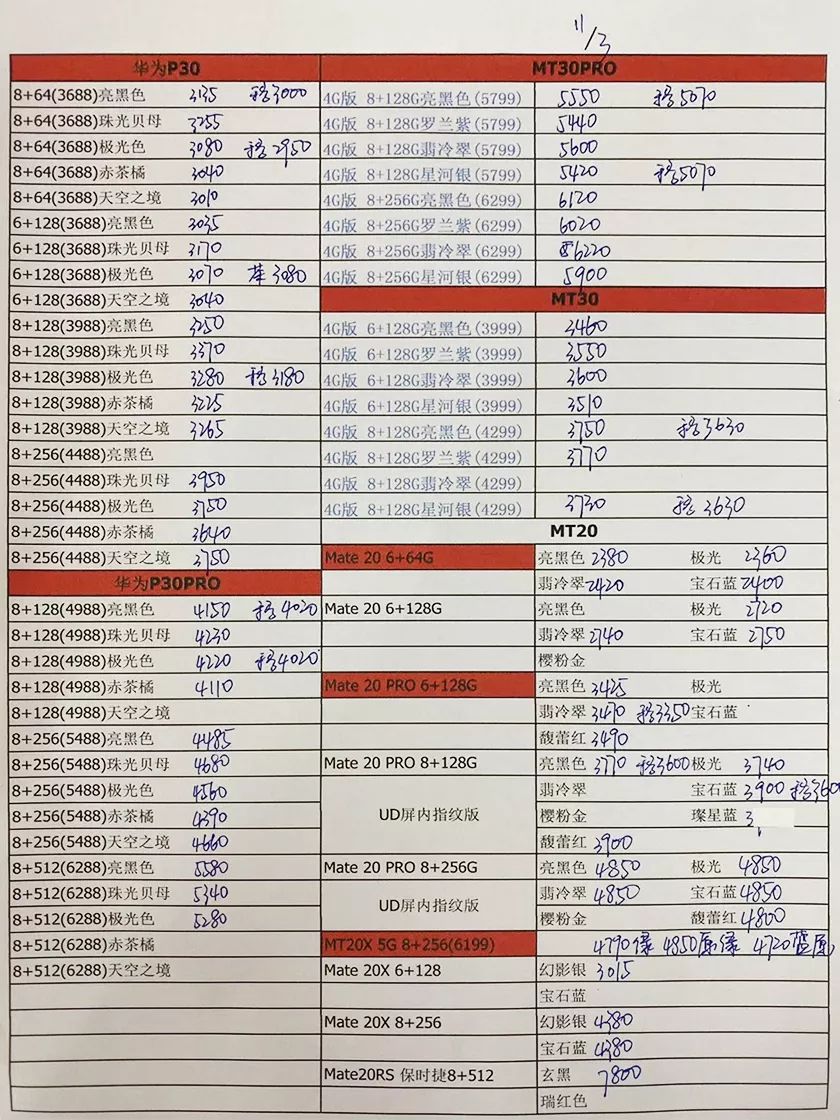 11/3
华为P30
8+64(3688)亮黑色 3135 移3000
8+64(3688)珠光贝母 3255
8+64(3688)极光色 3080 移2950
8+64(3688)赤茶橘 3040
8+64(3688)天空之境 3010
6+128(3688)亮黑色 3035
6+128(3688)珠光贝母 3170
6+128(3688)极光色 3070 3080
6+128(3688)天空之境 3040
8+128(3988)亮黑色 3250
8+128(3988)珠光贝母 3370
8+128(3988)极光色 3280 移3180
8+128(3988)赤茶橘 3225
8+128(3988)天空之境 3265
8+256(4488)亮黑色
8+256(4488)珠光贝母 3950
8+256(4488)极光色 3750
8+256(4488)赤茶橘 3640
8+256(4488)天空之境 3750
华为P30PRO
8+128(4988)亮黑色 4150 移4020
8+128(4988)珠光贝母 4230
8+128(4988)极光色 4220 移4020
8+128(4988)赤茶橘 4110
8+128(4988)天空之境
8+256(5488)亮黑色 4485
8+256(5488)珠光贝母 4680
8+256(5488)极光色 4560
8+256(5488)赤茶橘 4390
8+256(5488)天空之境 4660
8+512(6288)亮黑色 5580
8+512(6288)珠光贝母 5340
8+512(6288)极光色 5280
8+512(6288)赤茶橘
8+512(6288)天空之境
MT30PRO
4G版 8+128G亮黑色(5799) 5550 移5070
4G版 8+128G罗兰紫(5799) 5440
4G版 8+128G翡冷翠(5799) 5600
4G版 8+128G星河银(5799) 5420 移5070
4G版 8+256G亮黑色(6299) 6120
4G版 8+256G罗兰紫(6299) 6020
4G版 8+256G翡冷翠(6299) 6220
4G版 8+256G星河银(6299) 5900
MT30
4G版 6+128G亮黑色(3999) 3460
4G版 6+128G罗兰紫(3999) 3550
4G版 6+128G翡冷翠(3999) 3600
4G版 6+128G星河银(3999) 3510
4G版 8+128G亮黑色(4299) 3750 移3630
4G版 8+128G罗兰紫(4299) 3770
4G版 8+128G翡冷翠(4299)
4G版 8+128G星河银(4299) 3730 移3630
MT20
Mate 20 6+64G 亮黑色 2380 极光 2360
翡冷翠 2420 宝石蓝 2400
Mate 20 6+128G 亮黑色 极光 2720
翡冷翠 2740 宝石蓝 2750
樱粉金
Mate 20 PRO 6+128G 亮黑色 3425 极光
翡冷翠 3470 移3350 宝石蓝
馥蕾红 3490
Mate 20 PRO 8+128G 亮黑色 3770 移3600 极光 3740
翡冷翠 宝石蓝 3900 移3600
UD屏内指纹版 樱粉金 璨星蓝 3
馥蕾红 3900
Mate 20 PRO 8+256G 亮黑色 4850 极光 4850
翡冷翠 4850 宝石蓝 4850
UD屏内指纹版 樱粉金 馥蕾红 4800
MT20X 5G 8+256(6199) 4790绿 4850原绿 4720蓝原
Mate 20X 6+128 幻影银 3015
宝石蓝
Mate 20X 8+256 幻影银 4380
宝石蓝 4380
Mate20RS 保时捷8+512 玄黑 7800
瑞红色